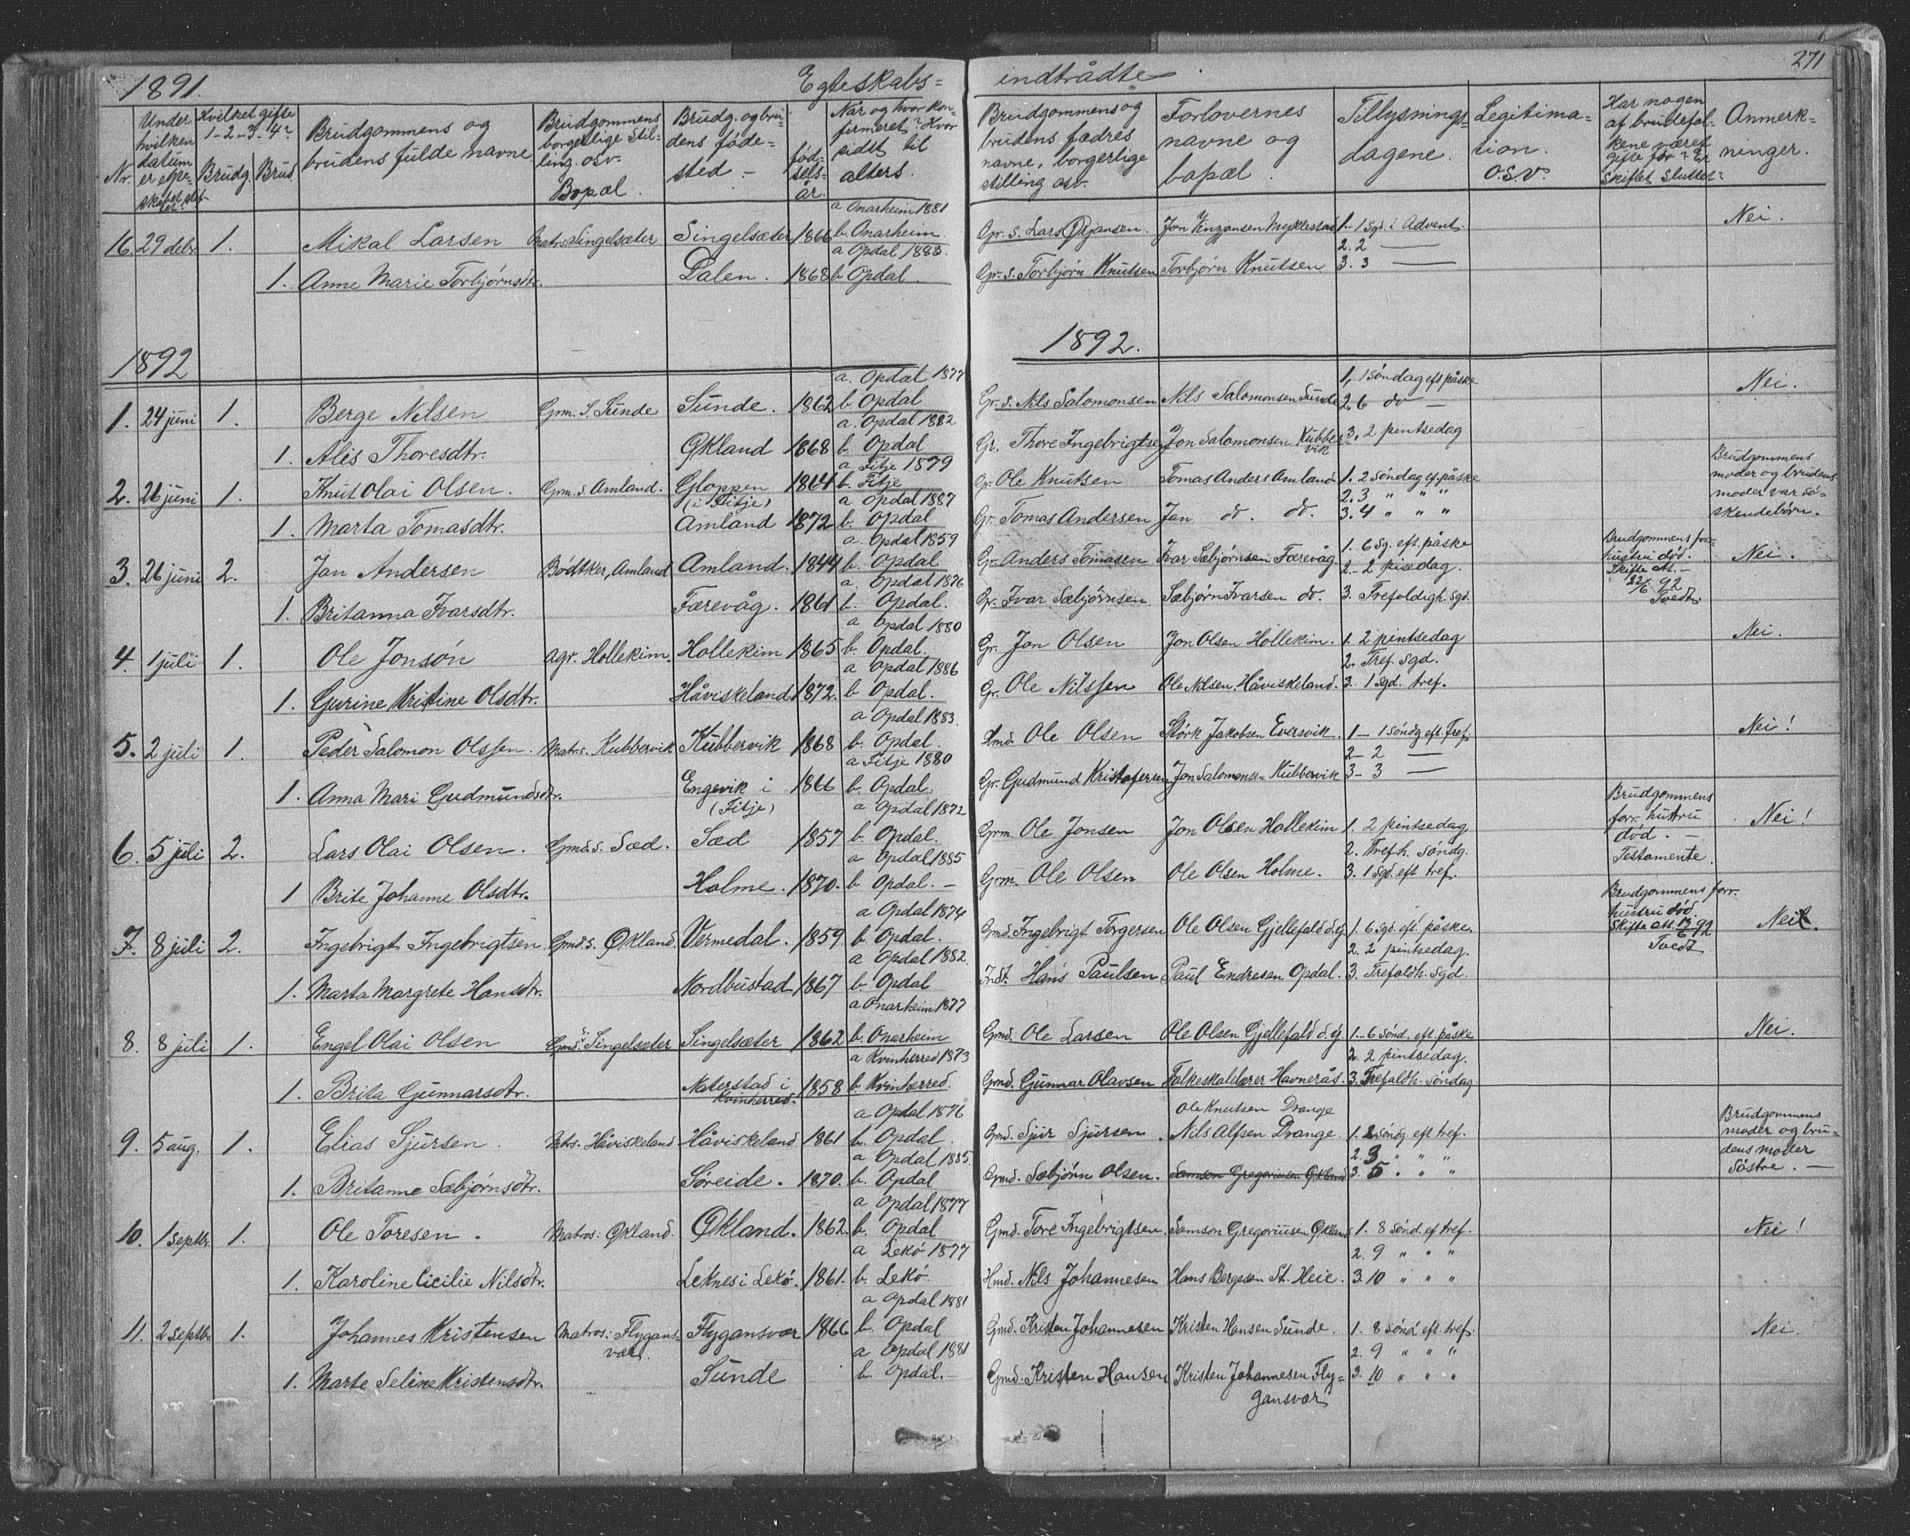 1891. Egteskabs= indtrådte 271
Nr. Under hvilken datum er egteskabet sluttet Hvilket gifte 1-2-3-4? Brudg. Brud Brudgommens og brudens fulde navne Brudgommens borgerlige stilling osv. Bopæl. Brudg. og brudens fødested – fødselsår. Når og hvor konfirmeret? Hvor sidst til alters. Brudgommens og brudens fædres navne, borgerlige stilling osv. Forlovernes navne og bopæl. Tillysningsdagene. Legitimation. O.S.V. Har nogen af brudefolkene været gifte før? Er skiftet sluttet? Anmerkninger.
a Onarheim 1881
16. 29 debr 1. Mikal Larsen Matros Singelsæter Singelsæter 1866 b. Onarheim Gr. s. Lars Ørjansen. Jon Vinzjansen Myklestad 1- 1 Sgd. i Advent. Nei.
a Opdal 1883. 2. 2 —
1. Anne Marie Torbjørnsdtr. Dalen. 1868 b Opdal. Gr. s. Torbjørn Knutsen Torbjørn Knutsen 3. 3 —
1892 1892.
a. Opdal 1877
1. 24 juni 1. Berge Nilsen Grm. S. Sunde Sunde. 1862 b. Opdal Gr. s. Nils Salomonsen Nils Salomonsen Sunde 1. 1 Søndag eft påske Nei.
a. Opdal 1882 2. 6 do —
1. Alis Thoresdtr. Økland 1868 b. Opdal Gr. Thore Ingebrigtsen Jon Salomonsen Kubbervik 3. 2 pintsedag
a Fitje 1879
2. 26 juni 1. Knut Olai Olsen. Grm. s. Amland. Gloppen (i Fitje) 1864 b. Fitje Gr. Ole Knutsen Tomas Anders Amland 1. 2 Søndag ef. påske Brudgommens moder og brudens moder var søskendebørn.
a Opdal 1887 2. 3 " " "
1. Marta Tomasdtr. Amland 1872 b. Opdal Gr. Tomas Andersen Jan do. do. 3. 4 " " "
a. Opdal 1859
3. 26 juni 2. Jan Andersen Bødtker, Amland Amland. 1844 b. Opdal Gr. Anders Tomasen Ivar Sæbjørnsen Færevåg 1. 6 Sg. eft. påske Brudgommens forr. hustru død. Skifte At. – 22/6 92 Tvedt. Nei.
a. Opdal 1876 2. – 2 pisedag.
1. Britanna Ivarsdtr. Færevåg. 1861 b. Opdal. Gr. Ivar Sæbjørnsen Sæbjørn Ivarsen do. 3. Trefoldigh. Sgd.
a Opdal 1880
4. 1 juli 1. Ole Jonsøn Agr. Hollekim. Hollekim 1865 b. Opdal. Gr. Jon Olsen Jon Olsen Hollekim. 1. 2 pintsedag Nei.
a Opdal 1886 2. Tref. Sgd.
1. Gurine Kristine Olsdtr. Håviskeland 1872. b. Opdal. Gr. Ole Nilssen Ole Nilsen, Håviskeland. 3. 1 sgd. tref.
a Opdal 1883.
5. 2 juli 1. Peder Salomon Olssen. Matros. Kubbervik Kubbervik 1868 b. Opdal. Hmd. Ole Olsen Størk Jakobsen Eversvik. 1 – 1 søndg eft. Tref. Nei!
a Fitje 1880 2 – 2 —
1. Anna Mari Gudmundsdtr. Engevik i (Fitje) 1866 b. Opdal. Gr. Gudmund Kristofersen Jon Salomonsen Kubbervik 3 – 3 —
a Opdal 1872
6. 5 juli 2. Lars Olai Olsen. Gmd. s. Sæd. Sæd 1857 b. Opdal. Grm. Ole Jonsen Jon Olsen Hollekim 1. 2 pintsedag Brudgommens forr. hustru død. – Testamente. Nei!
a Opdal 1885 2. Trefh. Søndg.
1 Brite Johanne Olsdtr. Holme. 1870. b Opdal. – Grm. Ole Olsen Ole Olsen Holme. 3. 1 sgd. eft tref.
a Opdal 1874
7. 8 juli 2. Ingebrigt Ingebrigtsen Gmd. s. Økland. Vermedal. 1859 b. Opdal. Gmd. Ingebrigt Torgersen Ole Olsen Gjellefald d. y. 1. 6 sgd. eft. påske. Brudgommens forr. hustru død. Skifte att. 92 Tvedt Nei.
a. Opdal 1882. 2. 2 pintsedag.
1. Marta Margrete Hansdtr. Nordbustad 1867 b. Opdal Indt. Hans Paulsen Paul Endresen Opdal. 3. Trefoldh. Sgd.
a Onarheim 1877
8. 8 juli 1. Engel Olai Olsen Gmd. s. Singelsæter Singelsæter 1862 b. Onarheim Gmd. Ole Larsen Ole Olsen Gjellefald d. y. 1 – 6 sønd. eft. påske Nei.
a Kvinherred 1873 2. 2 pintsedag.
1. Brita Gunnarsdtr. Naterstad i Kvinherred. 1858 b. Kvinherred. Gmd. Gunnar Olavsen Folkeskolelærer Havnerås. 3. Trefoldh. søndag
a Opdal 1876 Ole Knutsen Drange
9. 5 aug. 1. Elias Sjursen. Mtrs. Håviskeland Håviskeland 1861 b. Opdal. Gmd. Sjur Sjursen. Nils Alfsen Drange. 1. 2 søndg eft tref. Brudgommens moder og brudens moder Søstre. –
a Opdal 1885. 2. 3 " " "
1. Britanne Sæbjørnsdtr. Søreide. 1870. b. Opdal Gmd. Sæbjørn Olsen. Samson Gregoriusen Økland 3. 5 " " "
a Opdal 1877
10. 1 septbr. 1. Ole Toresen. Matros: Økland. Økland. 1862. b. Opdal Gmd. Tore Ingebrigtsen. Samson Gregoriusen Økland 1. 8 Sønd. ef tref. Nei!
a Lekø 1877 2. 9 " " "
1. Karoline Cicilie Nilsdtr. Leknes i Lekø. 1861. b. Lekø. Hmd. Nils Johannesen Hans Bergesen St. Heie. 3. 10 " " "
a Opdal 1881
11. 2 septbr. 1. Johannes Kristensen Matros: Flygansvær. Flygansvær 1866 b. Opdal Gmd. Kristen Johannesen Kristen Hansen Sunde. 1. 8 Sønd eft. tref. Nei.
a Opdal 1881 2. 9 " " "
1. Marte Seline Kristensdtr. Sunde b. Opdal. – Gmd. Kristen Hansen Kristen Johannesen Flygansvær 3. 10 " " "